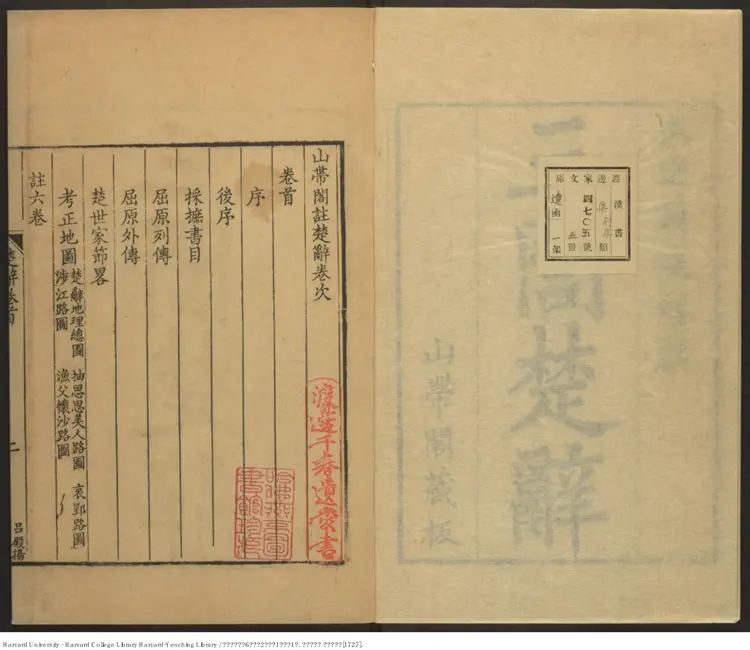 渡邊家文庫
漢書
四七〇五號
五冊
一架
楚辭
山帶閣藏板
山帶閣註楚辭卷次
渡邊千春遺愛書
卷首
序
後序
採摭書目
屈原列傳
屈原外傳
楚世家節畧
考正地圖
楚辭地理總圖 抽思思美人路圖 哀郢路圖
涉江路圖 漁父懷沙路圖
註六卷
楚辭卷首
二
呂殿揚
Harvard University - Harvard College Library Harvard-Yenching Library / ??????6???2???1???1?. ????? ?????[1727].